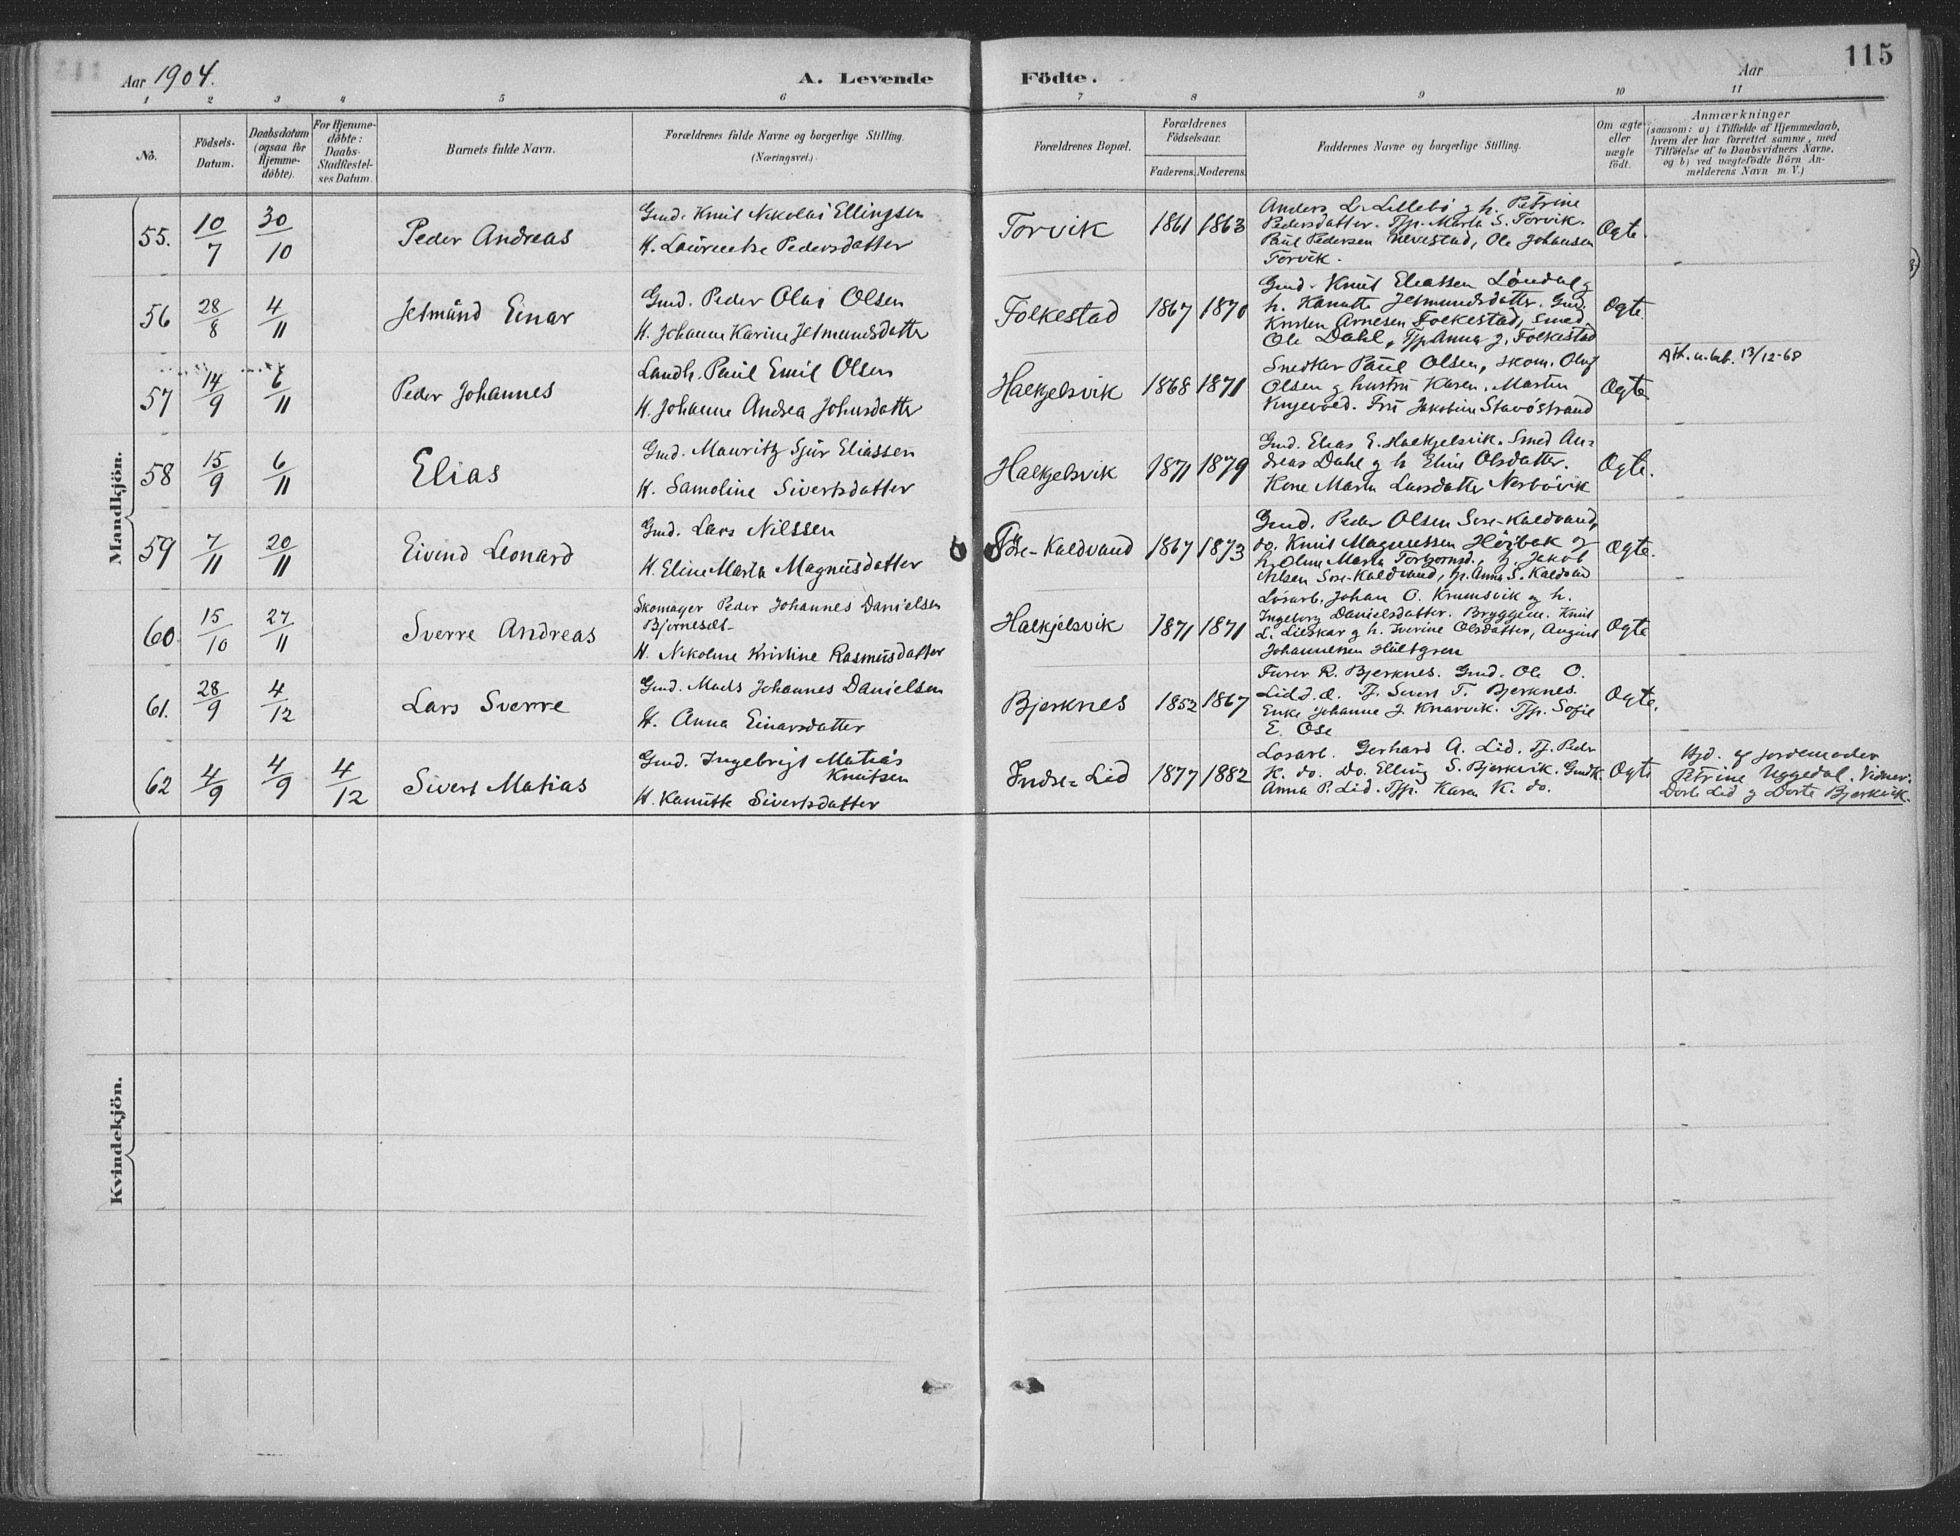 Aar 1904.
A. Levende
Födte.
Aar
115
1 2 3 4 5 6 7 8 9 10 11
No.
Födsels-
Datum.
Daabsdatum
(ogsaa for
Hjemme-
döbte).
For Hjemme-
döbte:
Daabs-
Stadfæstel-
ses Datum.
Barnets fulde Navn.
Forældrenes fulde Navne og borgerlige Stilling.
(Næringsvei.)
Forældrenes Bopæl.
Forældrenes
Födselsaar.
Faderens. Moderens.
Faddernes Navne og borgerlige Stilling.
Om ægte
eller
uægte
födt.
Anmærkninger
(saasom: a) i Tilfælde af Hjemmedaab,
hvem der har forrettet samme, med
Tilföielse af to Daabsvidners Navne,
og b) ved uægtefödte Börn An-
melderens Navn m. V.)
Mandkjön.
55. 10/7 30/10
Peder Andreas
Gmd. Knut Nikolai Ellingsen
H. Laurentse Pedersdatter
Torvik
1861 1863
Anders L. Lillebö g h. Petrine
Pedersdatter. Tjp. Marta S. Torvik.
Paul Pedersen, Ole Johansen
Torvik.
Ogte.
56 28/8 4/11
Jetmund Einar
Gmd. Peder Olai Olsen
H. Johanne Karine Jetmundsdatter
Folkestad
1867 1870
Gmd. Knut Eliassen Løndal g
h. Kanutte Jetmundsdatter. Gmd.
Kristen Arnesen Folkestad, Smed
Ole Dahl, Tjp. Anna J. Folkestad
Ogte.
57 14/9 6/11
Peder Johannes
Landh. Paul Emil Olsen
H. Johanne Andrea Johnsdatter
Halkjelsvik
1868 1871
Snedker Paul Olsen, skom. Oluf
Olsen g hustru Karen. Martin
Fru Jakobine
Ogte
Att. u.tab. 13/12-68
58 15/9 6/11
Elias
Gmd. Mauritz Sjur Eliassen
H. Samoline Sivertsdatter
Halkjelsvik
1871 1879
Gmd. Elias E. Halkjelsvik. Smed An-
dreas Dahl g h Eline Olsdatter.
Kone Marta Larsdatter
Ogte.
59 7/11 20/11
Eivind Leonard
Gmd. Lars Nilssen
H. Eline Marta Magnusdatter
Øvre-Kaldvand
1867 1873
Gmd. Peder Olsen Øvre-Kaldvand,
do. Knut Magnussen Højbak g
h. Oline Marta, g. Jakob
Nilsen Øvre-Kaldvand, tp. Anna S. Kaldvand
Ogte.
60. 15/10 27/11
Sverre Andreas
Skomager Peder Johannes Danielsen
Bjørneset
H. Nikoline Kristine Rasmusdatter
Halkjelsvik
1871 1871
Løsarb. Johan O. Krumsvik g h.
Ingeborg Danielsdatter. Bryggem. Knut
L. Lieskar g h. Iverine Olsdatter, August
Johannessen Hultgren
Ogte
61. 28/9 4/12
Lars Sverre
Gmd. Mads Johannes Danielsen
H. Anna Einarsdatter
Bjerknes
1852 1867
Furer R. Bjerknes. Gmd. Ole O.
Lid. Tj. Sivert T. Bjerknes.
Enke Johanne J. Knarvik. Tjp. Sofie
E. Ose
Ogte.
62 4/9 4/9 4/12
Sivert Matias
Gmd. Ingebrigt Matias
Knutsen
H. Kanutte Sivertsdatter
Indre-Lid
1877 1882
Losarb. Gerhard A. Lid. Tj. Peder
K. do. Do. Elling S. Bjerkvik. Gmdk.
Anna P. Lid. Tjp. Karen K. do.
Ogte
Hjd. af Jordemoder
Petrine Uggedal. Vidner:
Dorte Lid g Dorte Bjerkvik.
Kvindekjön.